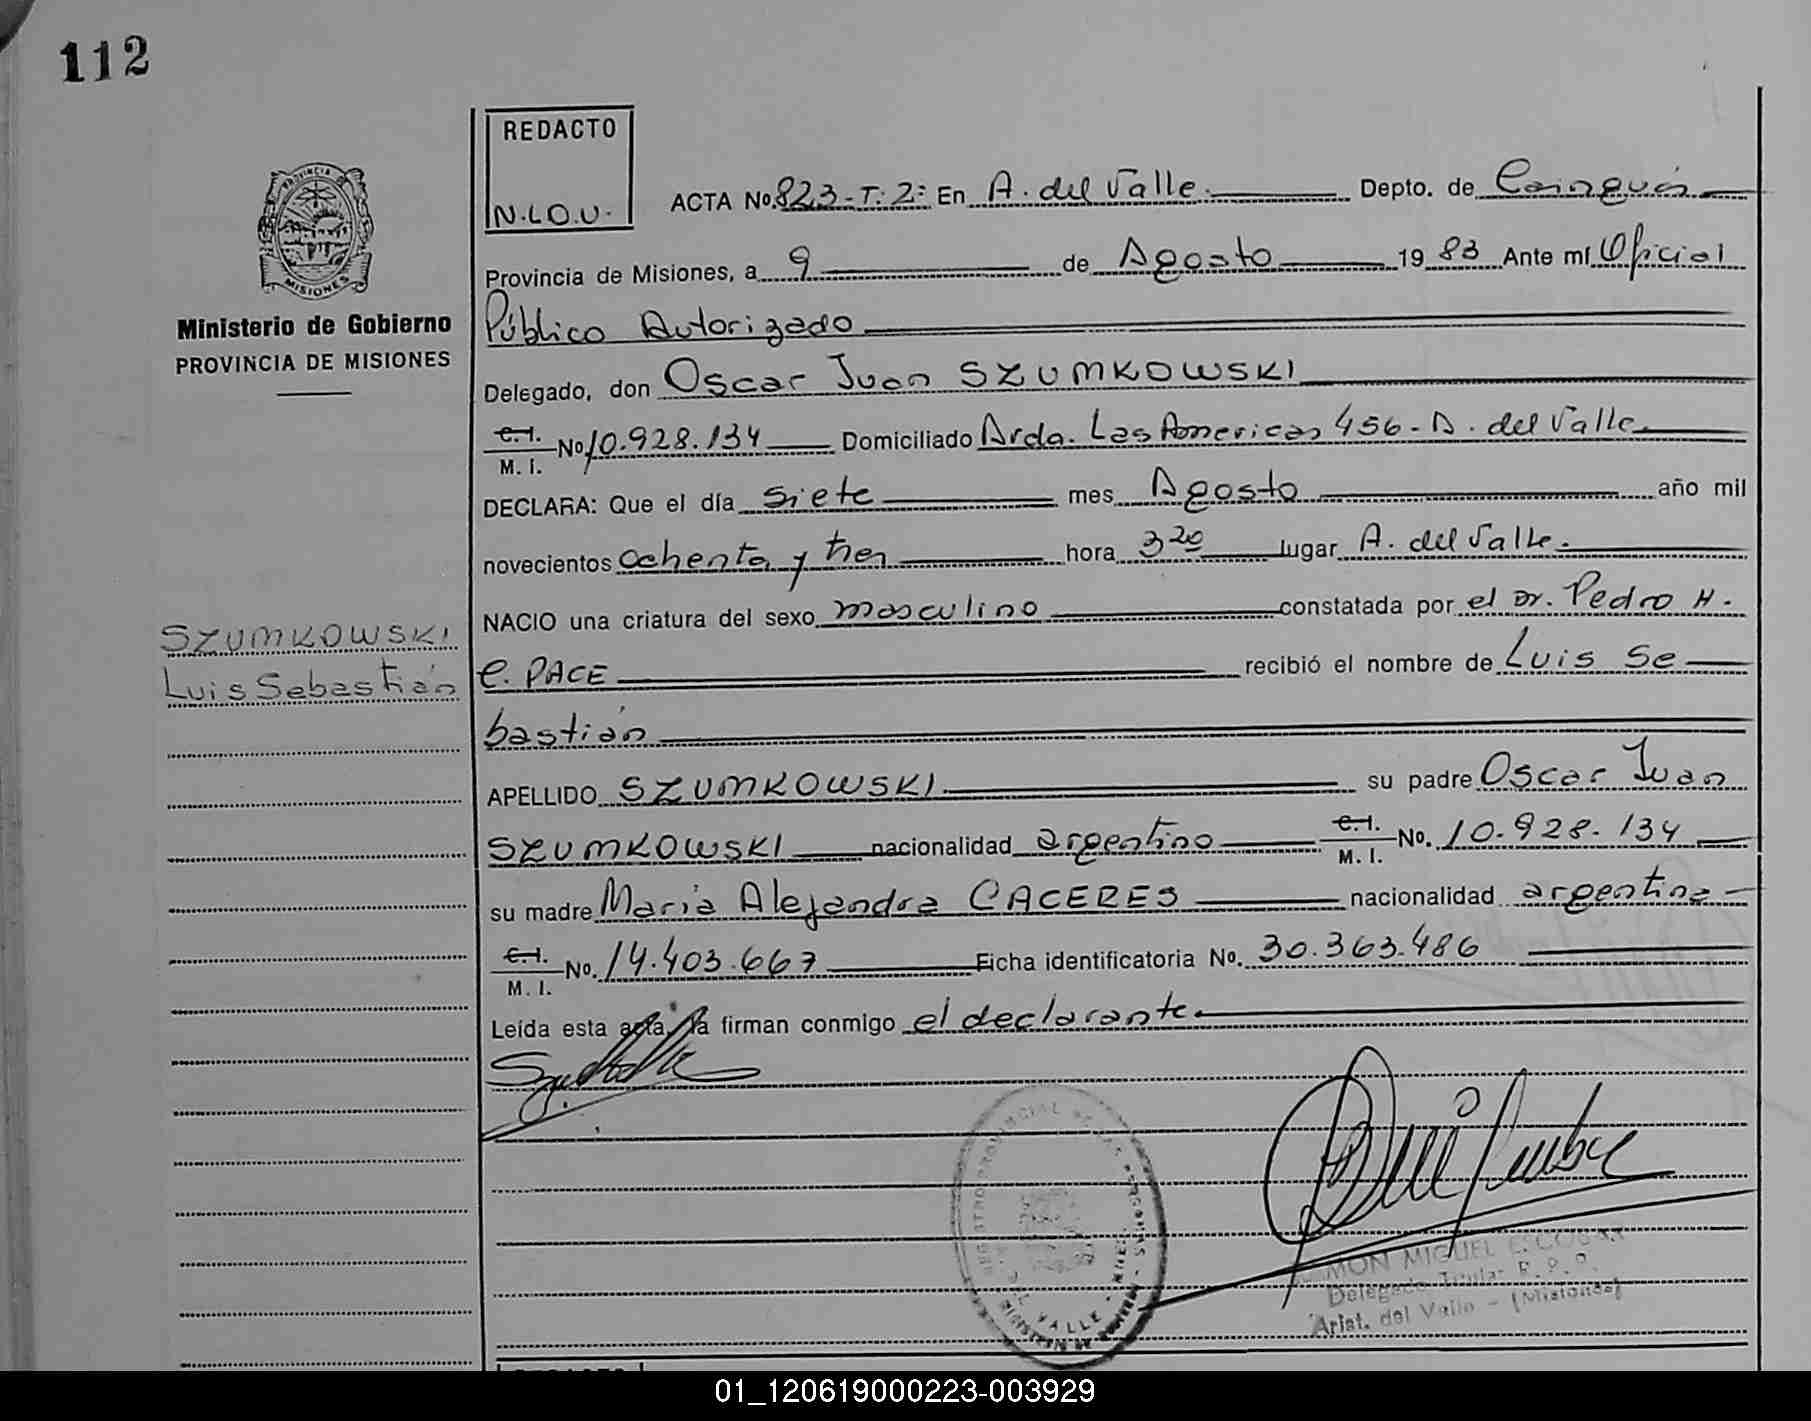 112
REDACTO
N.L.O.U.
PROVINCIA DE
MISIONES
Ministerio de Gobierno
PROVINCIA DE MISIONES
SZUMKOWSKI
Luis Sebastián
ACTA No. 823-T: 2º En A. del Valle. Depto. de Cainguás
Provincia de Misiones, a 9 de Agosto 1983 Ante mí Oficial
Público Autorizado
Delegado, don Oscar Juan SZUMKOWSKI
C.I. M. I. No 10.928.134 Domiciliado Avda. Las Americas 456- A. del Valle.
DECLARA: Que el día siete mes Agosto año mil
novecientos ochenta y tres hora 3 20 lugar A. del Valle.
NACIO una criatura del sexo masculino constatada por el Dr. Pedro H.
C. PACE recibió el nombre de Luis Se
bastián
APELLIDO SZUMKOWSKI su padre Oscar Juan
SZUMKOWSKI nacionalidad argentino C.I. M. I. No. 10.928.134
su madre Maria Alejandra CACERES nacionalidad argentina
C.I. M. I. No. 14.403.667 Ficha identificatoria No. 30.363.486
Leída esta acta, la firman conmigo el declarante.
REGISTRO PROVINCIAL DE LAS PERSONAS
DEL VALLE
MIGUEL ESCOBAR
Delegado Titular R. P. P.
Arist. del Valle - (Misiones)
01_120619000223-003929